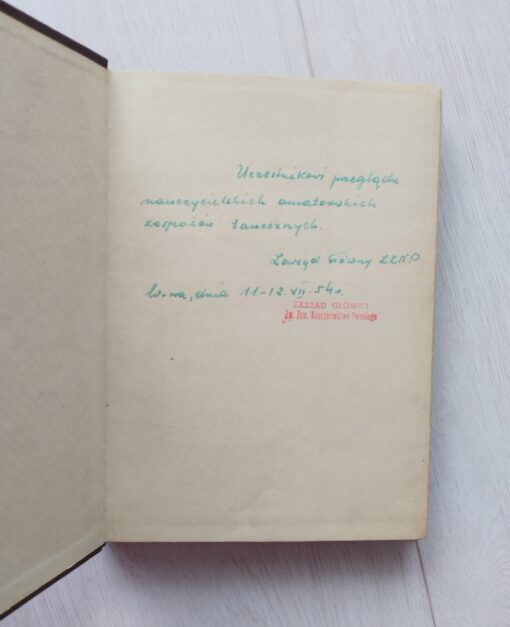 Uczestnikowi przeglądu
nauczycielskich amatorskich
zespołów tanecznych.
Zarząd Główny ZZNP
W-wa, dnia 11-12.XII.54 r.
ZARZĄD GŁÓWNY
Zw. Zaw. Nauczycielstwa Polskiego